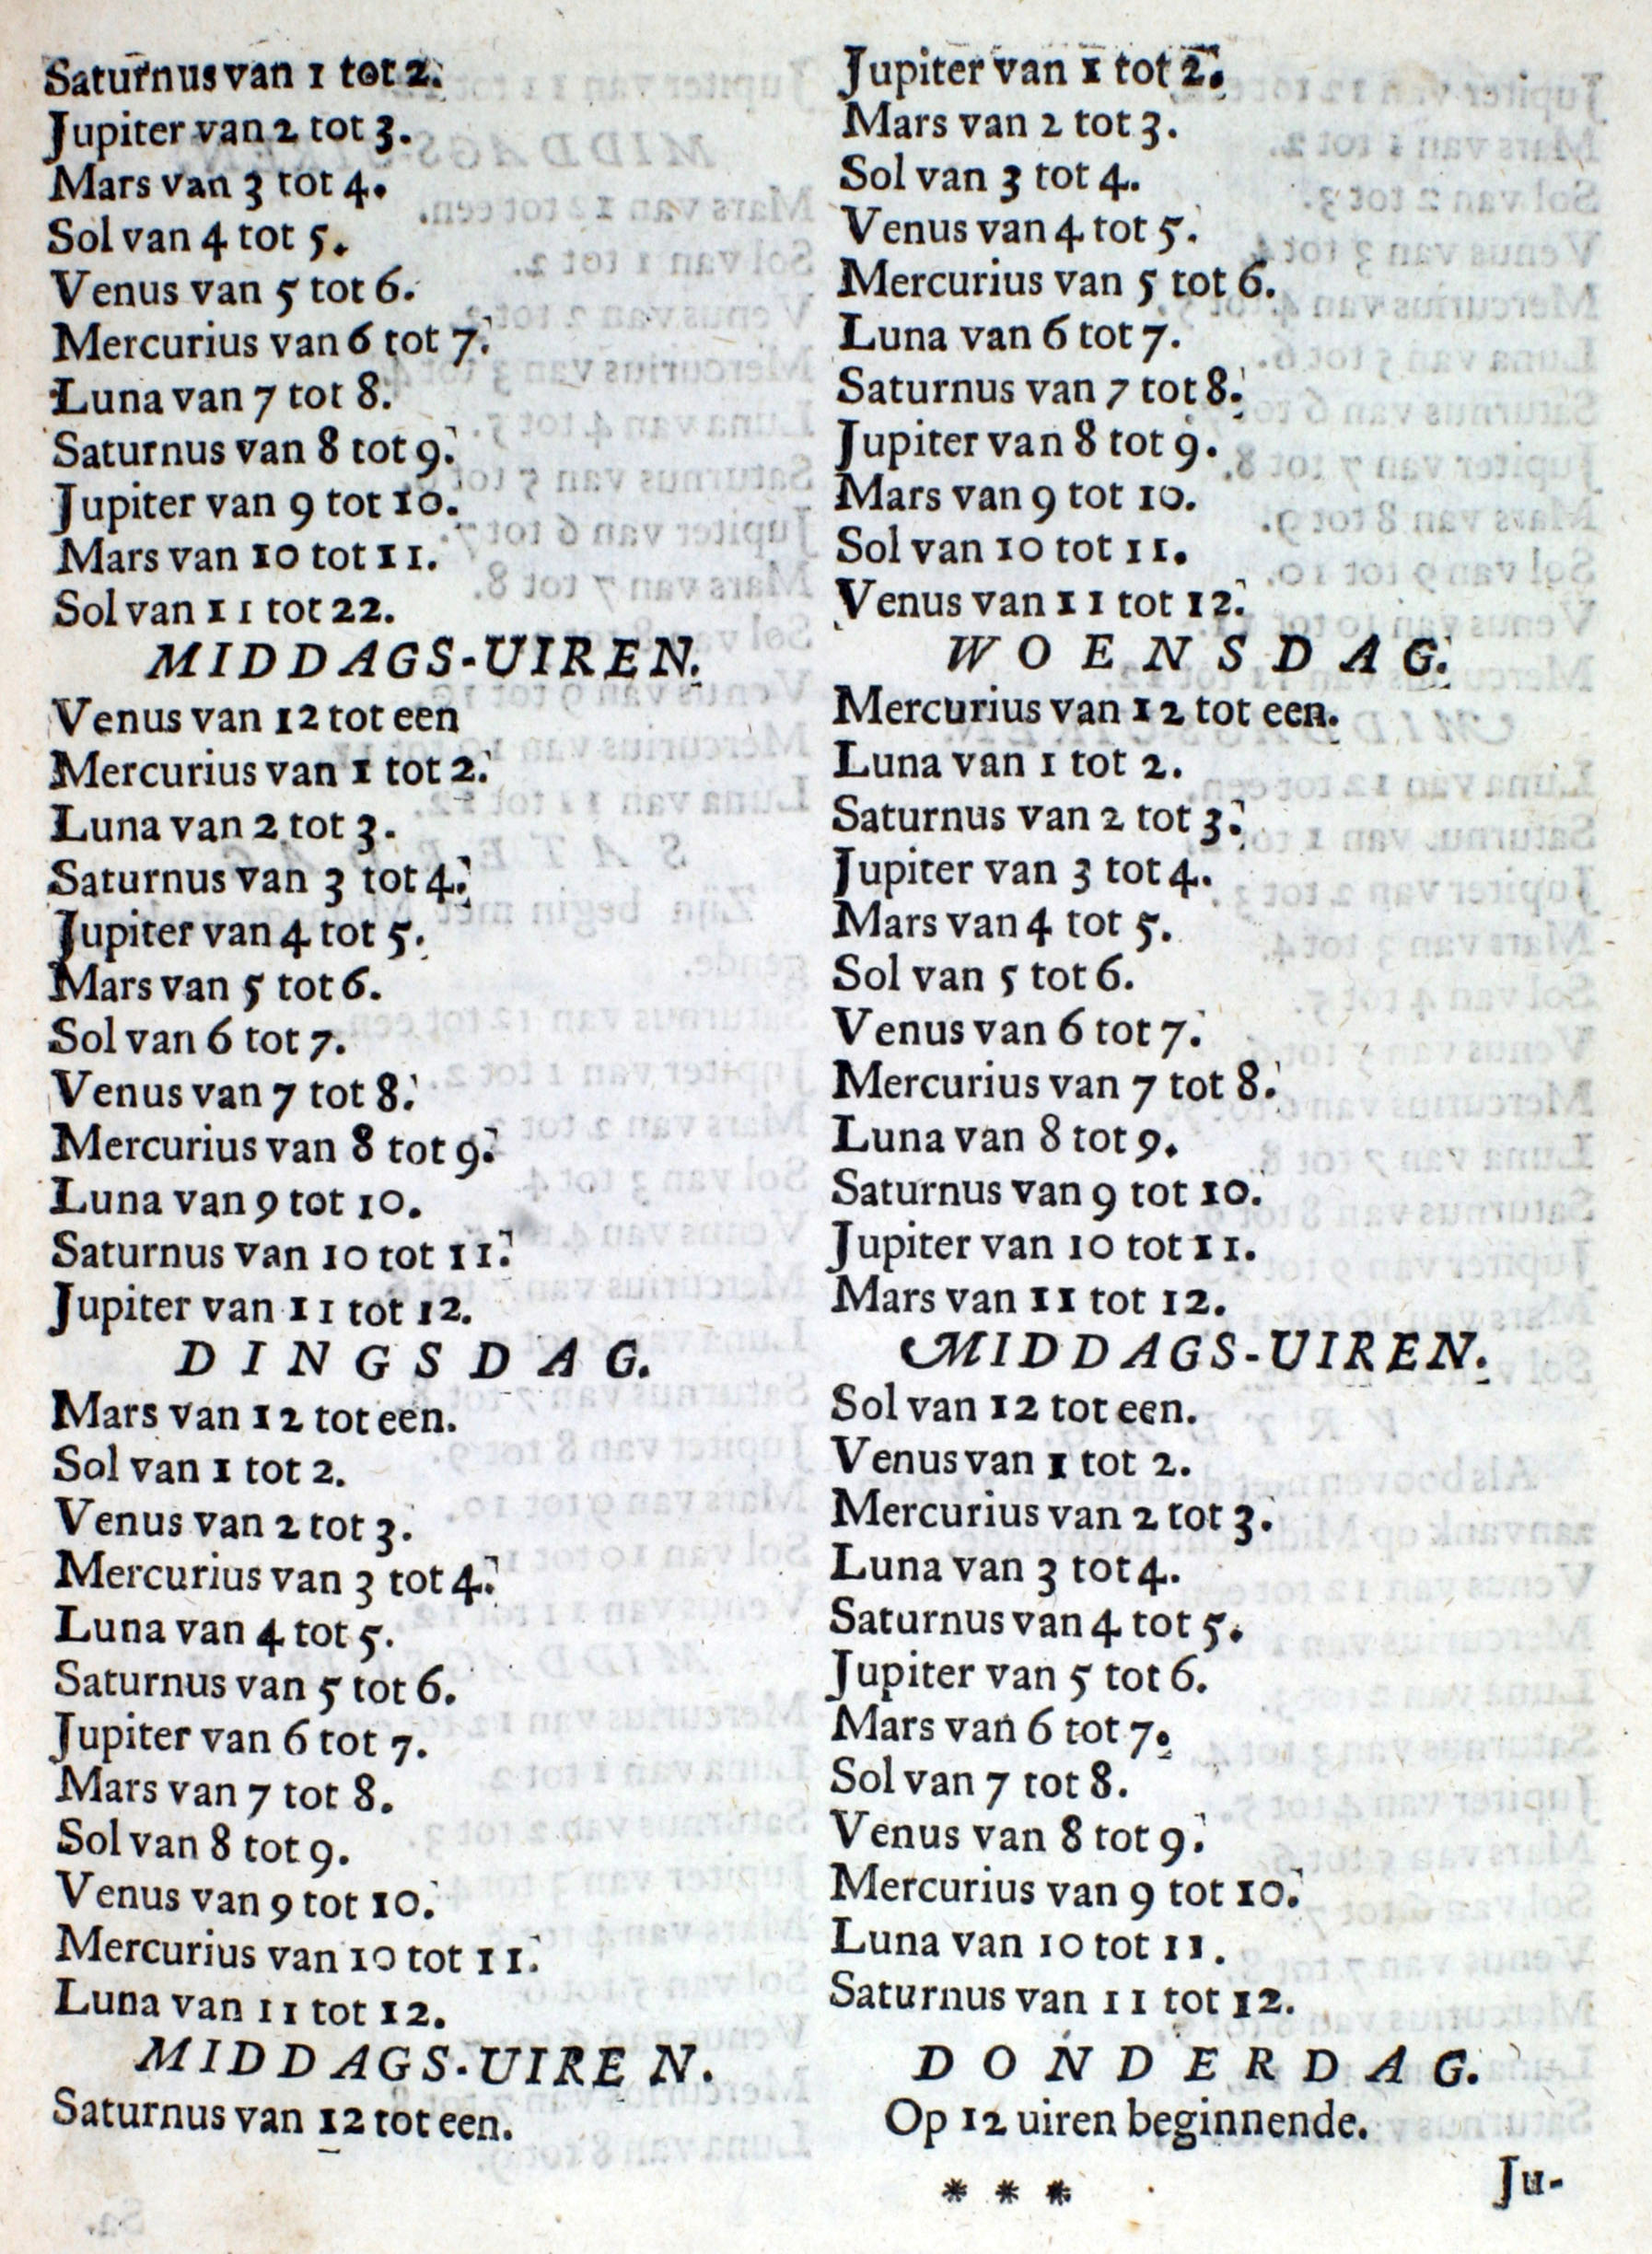 Saturnus van 1 tot 2.
Jupiter van 2 tot 3.
Mars van 3 tot 4.
Sol van 4 tot 5.
Venus van 5 tot 6.
Mercurius van 6 tot 7.
Luna van 7 tot 8.
Saturnus van 8 tot 9.
Jupiter van 9 tot 10.
Mars van 10 tot 11.
Sol van 11 tot 22.
MIDDAGS-UIREN.
Venus van 12 tot een
Mercurius van 1 tot 2.
Luna van 2 tot 3.
Saturnus van 3 tot 4.
Jupiter van 4 tot 5.
Mars van 5 tot 6.
Sol van 6 tot 7.
Venus van 7 tot 8.
Mercurius van 8 tot 9.
Luna van 9 tot 10.
Saturnus van 10 tot 11.
Jupiter van 11 tot 12.
DINGSDAG.
Mars van 12 tot een.
Sol van 1 tot 2.
Venus van 2 tot 3.
Mercurius van 3 tot 4.
Luna van 4 tot 5.
Saturnus van 5 tot 6.
Jupiter van 6 tot 7.
Mars van 7 tot 8.
Sol van 8 tot 9.
Venus van 9 tot 10.
Mercurius van 10 tot 11.
Luna van 11 tot 12.
MIDDAGS-UIREN.
Saturnus van 12 tot een.
Jupiter van 1 tot 2.
Mars van 2 tot 3.
Sol van 3 tot 4.
Venus van 4 tot 5.
Mercurius van 5 tot 6.
Luna van 6 tot 7.
Saturnus van 7 tot 8.
Jupiter van 8 tot 9.
Mars van 9 tot 10.
Sol van 10 tot 11.
Venus van 11 tot 12.
WOENSDAG.
Mercurius van 12 tot een.
Luna van 1 tot 2.
Saturnus van 2 tot 3.
Jupiter van 3 tot 4.
Mars van 4 tot 5.
Sol van 5 tot 6.
Venus van 6 tot 7.
Mercurius van 7 tot 8.
Luna van 8 tot 9.
Saturnus van 9 tot 10.
Jupiter van 10 tot 11.
Mars van 11 tot 12.
MIDDAGS-UIREN.
Sol van 12 tot een.
Venus van 1 tot 2.
Mercurius van 2 tot 3.
Luna van 3 tot 4.
Saturnus van 4 tot 5.
Jupiter van 5 tot 6.
Mars van 6 tot 7.
Sol van 7 tot 8.
Venus van 8 tot 9.
Mercurius van 9 tot 10.
Luna van 10 tot 11.
Saturnus van 11 tot 12.
DONDERDAG.
Op 12 uiren beginnende.
* * *
Ju-